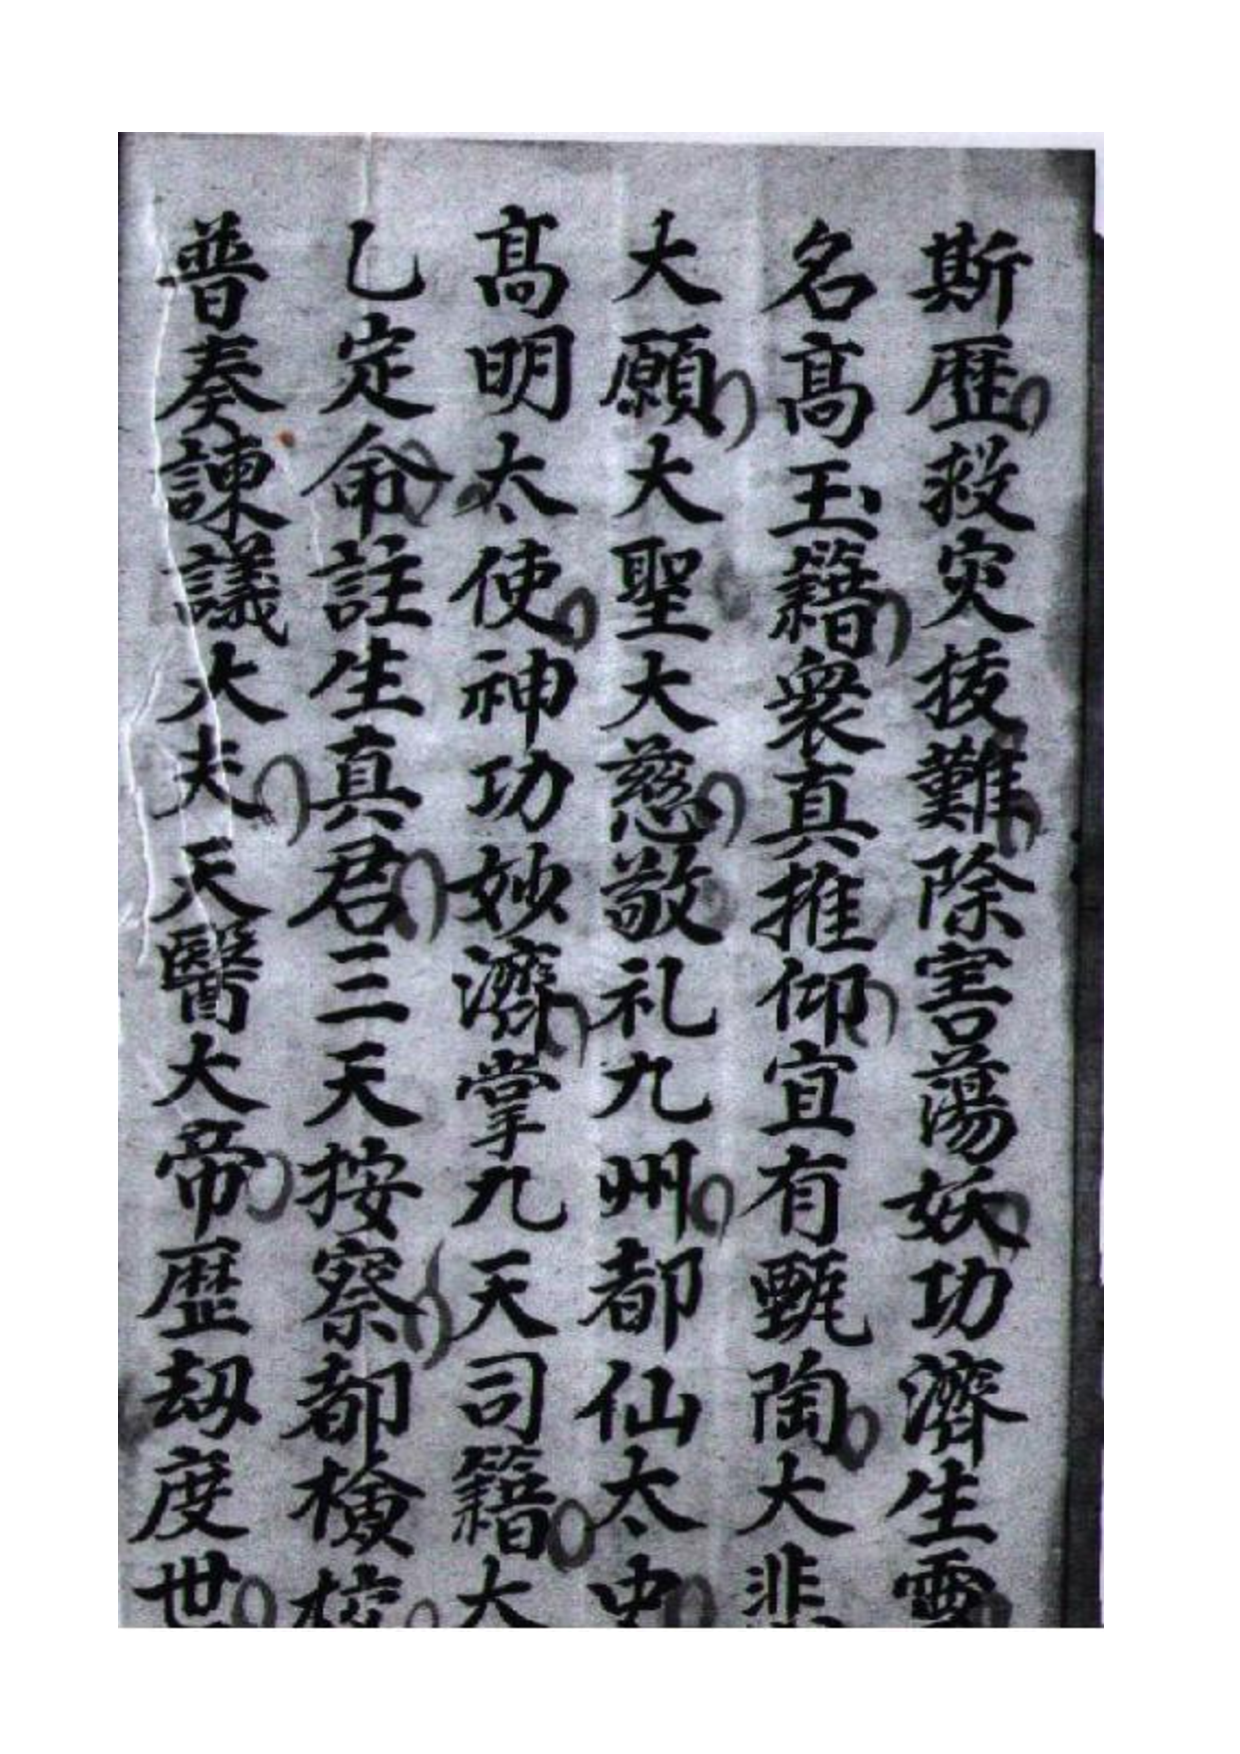 斯歷救灾拔難除害蕩妖功濟生靈
名髙玉籍衆真推仰宜有甄陶大悲
大願大聖大慈敬礼九州都仙太史
髙明太使神功妙濟掌九天司籍大
乙定命註生真君三天按察都檢校
普奏諫議大夫天醫大帝歷刼度世